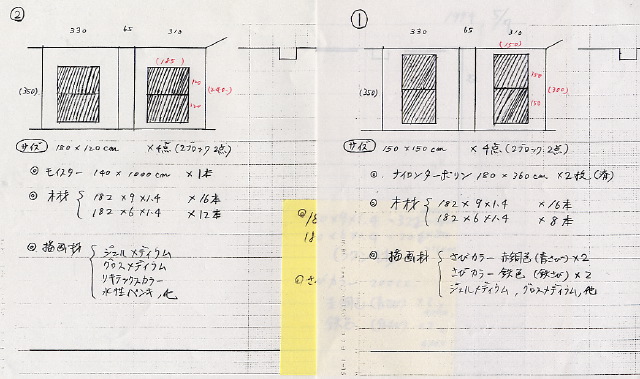 ②
330 65 310
(185)
(350)
120
120
(240)
サイズ 180×120cm ×4点(2ブロック2点)
◎ モイスター 140×1000cm ×1本
◎ 木材 182×9×1.4 ×16本
182×6×1.4 ×12本
◎ 描画材 ジェルメディウム
グロスメディウム
リキテックスカラー
水性ペンキ,他
①
330 65 310
(150)
(350)
150
150
(300)
サイズ 150×150cm ×4点(2ブロック2点)
◎ ナイロンターポリン 180×360cm ×2枚(有)
◎ 木材 182×9×1.4 ×16本
182×6×1.4 ×8本
◎ 描画材 さびカラー 赤銅色(青さび)×2
さびカラー 鉄色(鉄さび)×2
ジェルメディウム,グロスメディウム,他